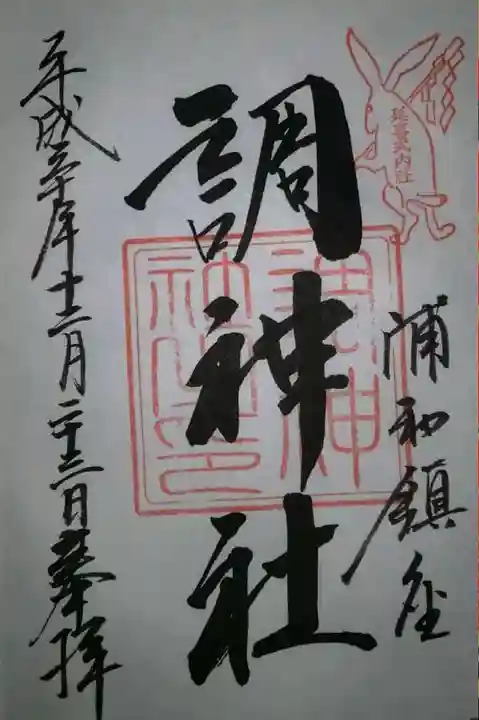 延喜式内社
浦和鎮座
調神社
調神
社之印
平成三十年十二月二十三日奉拝